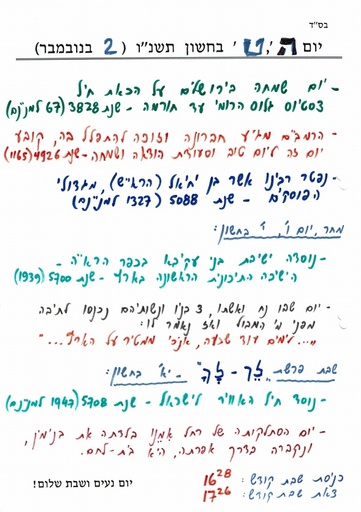 בס"ד
יום ה', ט' בחשון תשנ"ו ( 2 בנובמבר)
- יום שמחה בירושלים על הכאת חיל
צסטיוס גלוס הרומי עד חורמה - שנת 3828 (67 למנינם)
- הרמב"ם מגיע חברונה וזוכה להתפלל בה, קובע
יום זה ליום טוב וסעודת הודאה ושמחה - שנת 4926 (1165)
- נפטר רבינו אשר בן יחיאל (הרא"ש), מגדולי
הפוסקים - שנת 5088 (1327 למנינם)
מחר, יום ו', י' בחשון:
- נוסדה ישיבת בני עקיבא בכפר הרא"ה -
הישיבה התיכונית הראשונה בארץ - שנת 5700 (1939)
- יום שבו נח ואשתו, 3 בניו ונשותיהם נכנסו לתיבה
מפני מי המבול ואז נאמר לו:
"...לימים עוד שבעה, אנכי ממטיר על הארץ..."
שבת פרשת "לך - לך" - י"א בחשון:
- נוסד חיל האוויר לישראל - שנת 5708 (1947 למנינם)
- יום הסתלקותה של רחל אמנו בלדתה את בנימין,
ונקברה בדרך אפרתה, היא בית-לחם.
כניסת שבת קודש: 16²⁸
צאת שבת קודש: 17²⁶
יום נעים ושבת שלום!